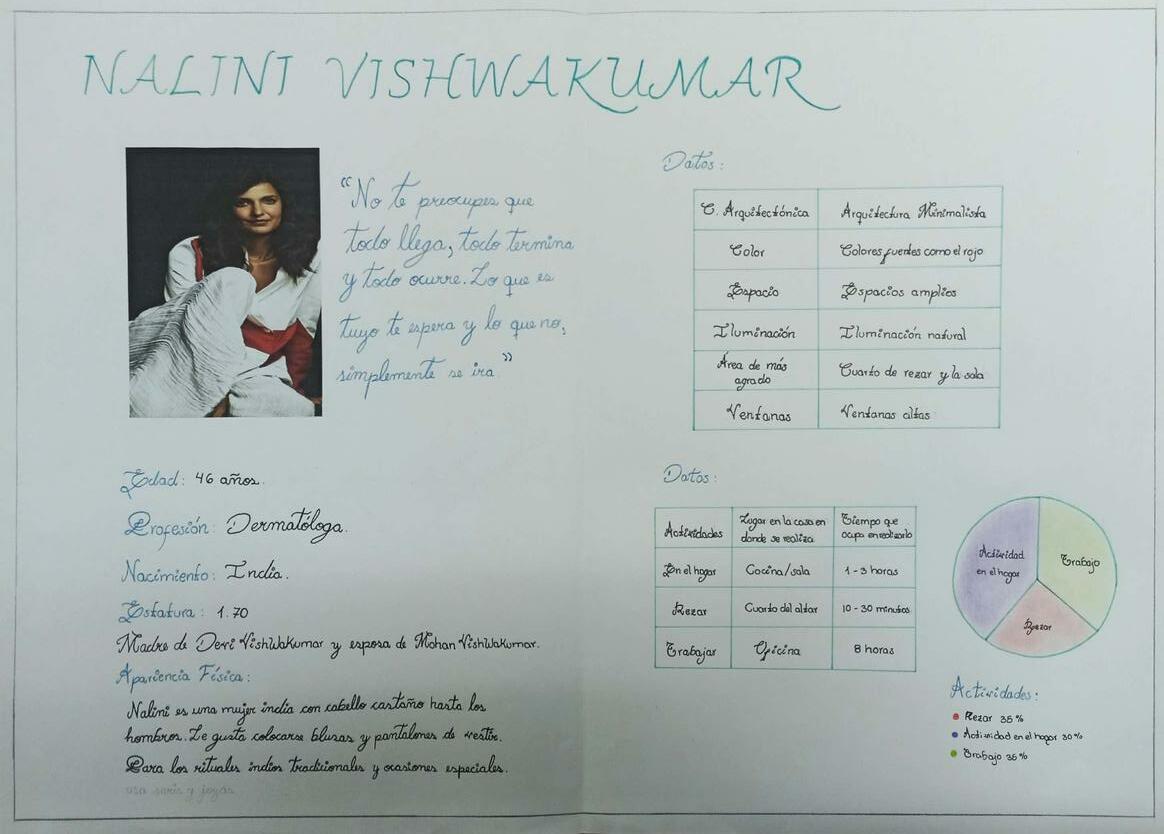 NALINI VISHWAKUMAR
“No te preocupes que
todo llega, todo termina
y todo ocurre. Lo que es
tuyo te espera y lo que no,
simplemente se ira.”
Edad: 46 años.
Profesión: Dermatóloga.
Nacimiento: India.
Estatura: 1.70
Madre de Devi Vishwakumar y esposa de Mohan Vishwakumar.
Apariencia Física:
Nalini es una mujer india con cabello castaño hasta los
hombros. Le gusta colocarse blusas y pantalones de vestir.
Para los rituales indios tradicionales y ocasiones especiales.
usa saris y joyas
Datos:
C. Arquitectónica Arquitectura Minimalista
Color Colores fuertes como el rojo
Espacio Espacios amplios
Iluminación Iluminación natural
Área de más
agrado Cuarto de rezar y la sala
Ventanas Ventanas altas
Datos:
Actividades Lugar en la casa en
donde se realiza Tiempo que
ocupa en realizarlo
En el hogar Cocina/sala 1 - 3 horas
Rezar Cuarto del altar 10 - 30 minutos
Trabajar Oficina 8 horas
Actividad
en el hogar
Trabajo
Rezar
Actividades:
Rezar 35 %
Actividad en el hogar 30 %
Trabajo 35 %